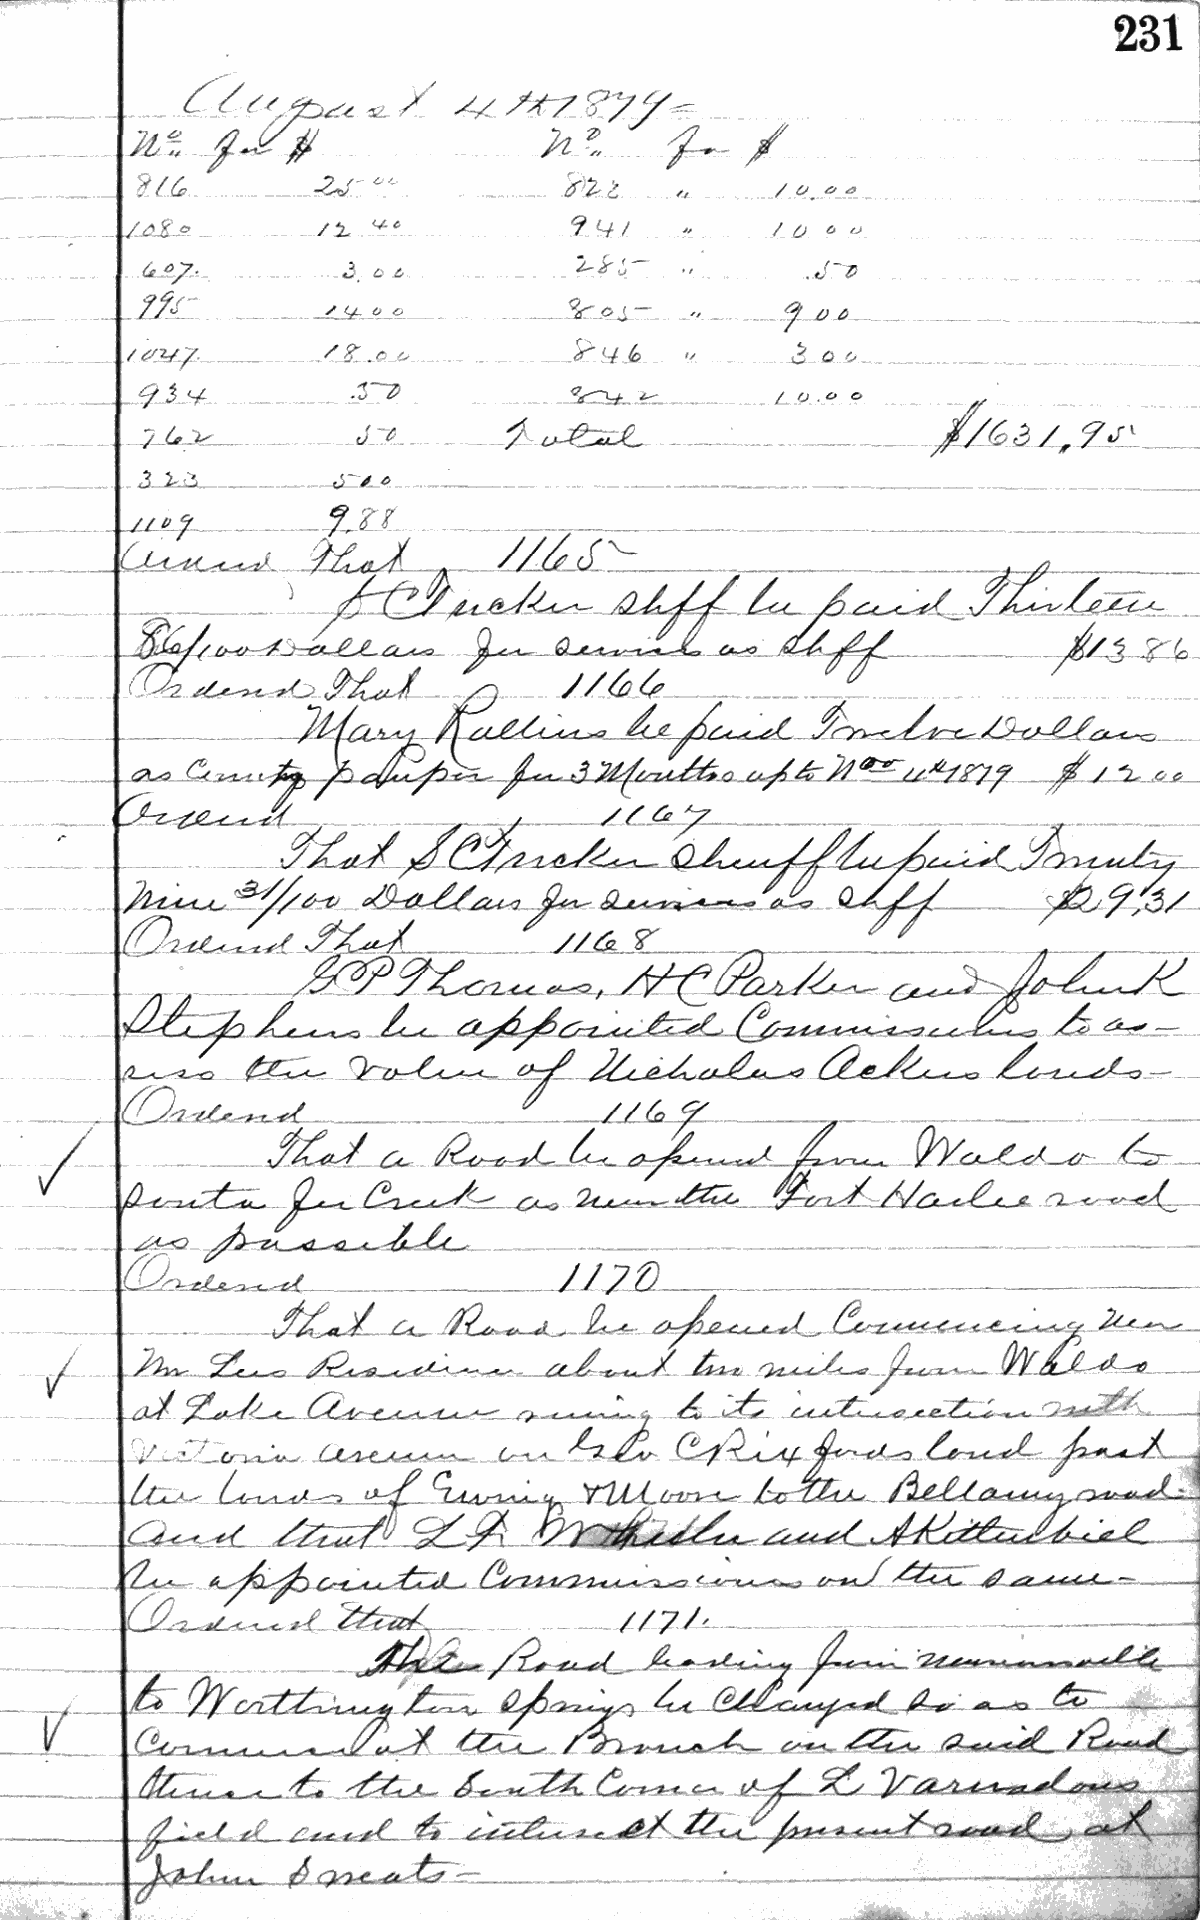 231
August 4th 1879 =
No. for $ No. for $
816 25.00 822 " 10.00
1080 12.40 941 " 10 00
607. 3.00 285 " .50
995 14 00 805 " 9 00
1047 18.00 846 " 3 00
934 .50 842 10.00
762 50 Total $1631.95
323 5 00
1109 9.88
Ordered That 1165
S C Tucker Shff be paid Thirteen
86/100 Dollars for services as Shff $13 86
Ordered That 1166
Mary Rollins be paid Twelve Dollars
as County pauper for 3 Months up to Nov 4th 1879 $12 00
Ordered 1167
That S C Tucker Sheriff be paid Twenty
Nine 31/100 Dollars for services as Shff $29.31
Ordered That 1168
G P Thomas, H C Parker and John K
Stephens be appointed Commissioners to as-
sess the value of Nicholas Ackers lands-
Ordered 1169
That a Road be opened from Waldo to
Santa Fee Creek as near the Fort Harlee road
as possible
Ordered 1170
That a Road be opened Commencing Near
Mr Lees Residence about two miles from Waldo
at Lake Avenue runing to its intersection with
Victoria avenue on Geo C Rixfords land past
the lands of Ewing & Moore to the Bellamy road-
and that L F and A Kitterbiel
be appointed Commissioners on the same-
Ordered that 1171.
The Road leading from
to Worthington Springs be Changed so as to
Commence at the Branch on the said Road
thence to the South Corner of L Varnadoes
field and to intersect the present road at
John Sneats-